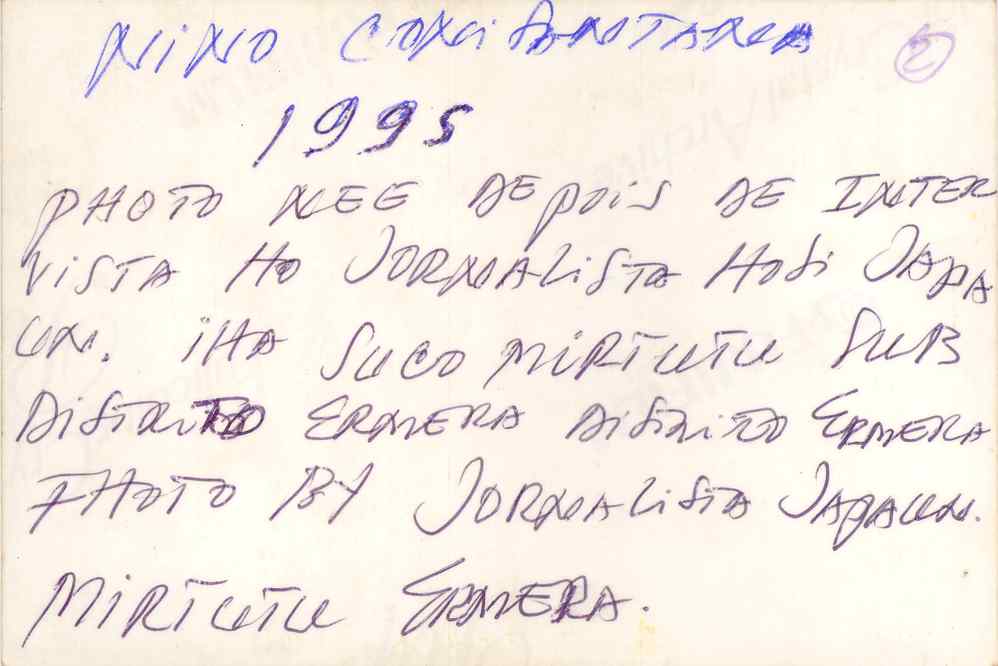 NINO CONISANTANA
2
1995
PHOTO NEE DEPOIS DE INTER
VISTA HO JORNALISTA HOSI JAPA
UN. IHA SUCO MIRTUTU SUB
DISTRITO ERMERA DISTRITO ERMERA
PHOTO BY JORNALISTA JAPAUN.
MIRTUTU ERMERA.